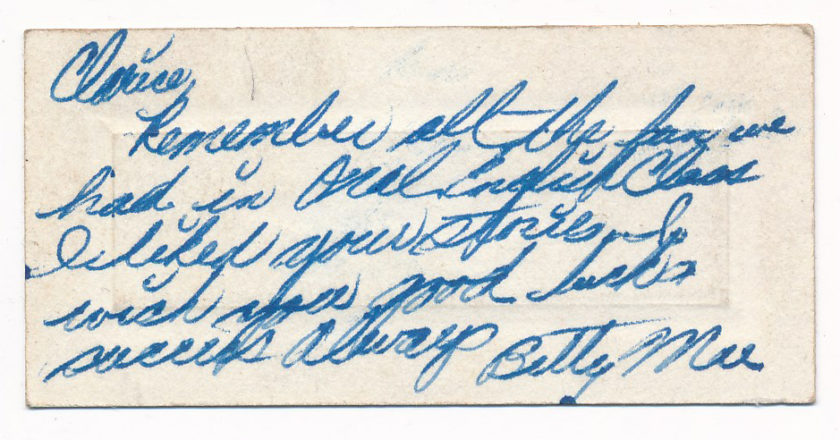 Clarice,
Remember all the fun we
had in Oral English Class
I liked your stories. I
wish you good luck &
success always Betty Mae